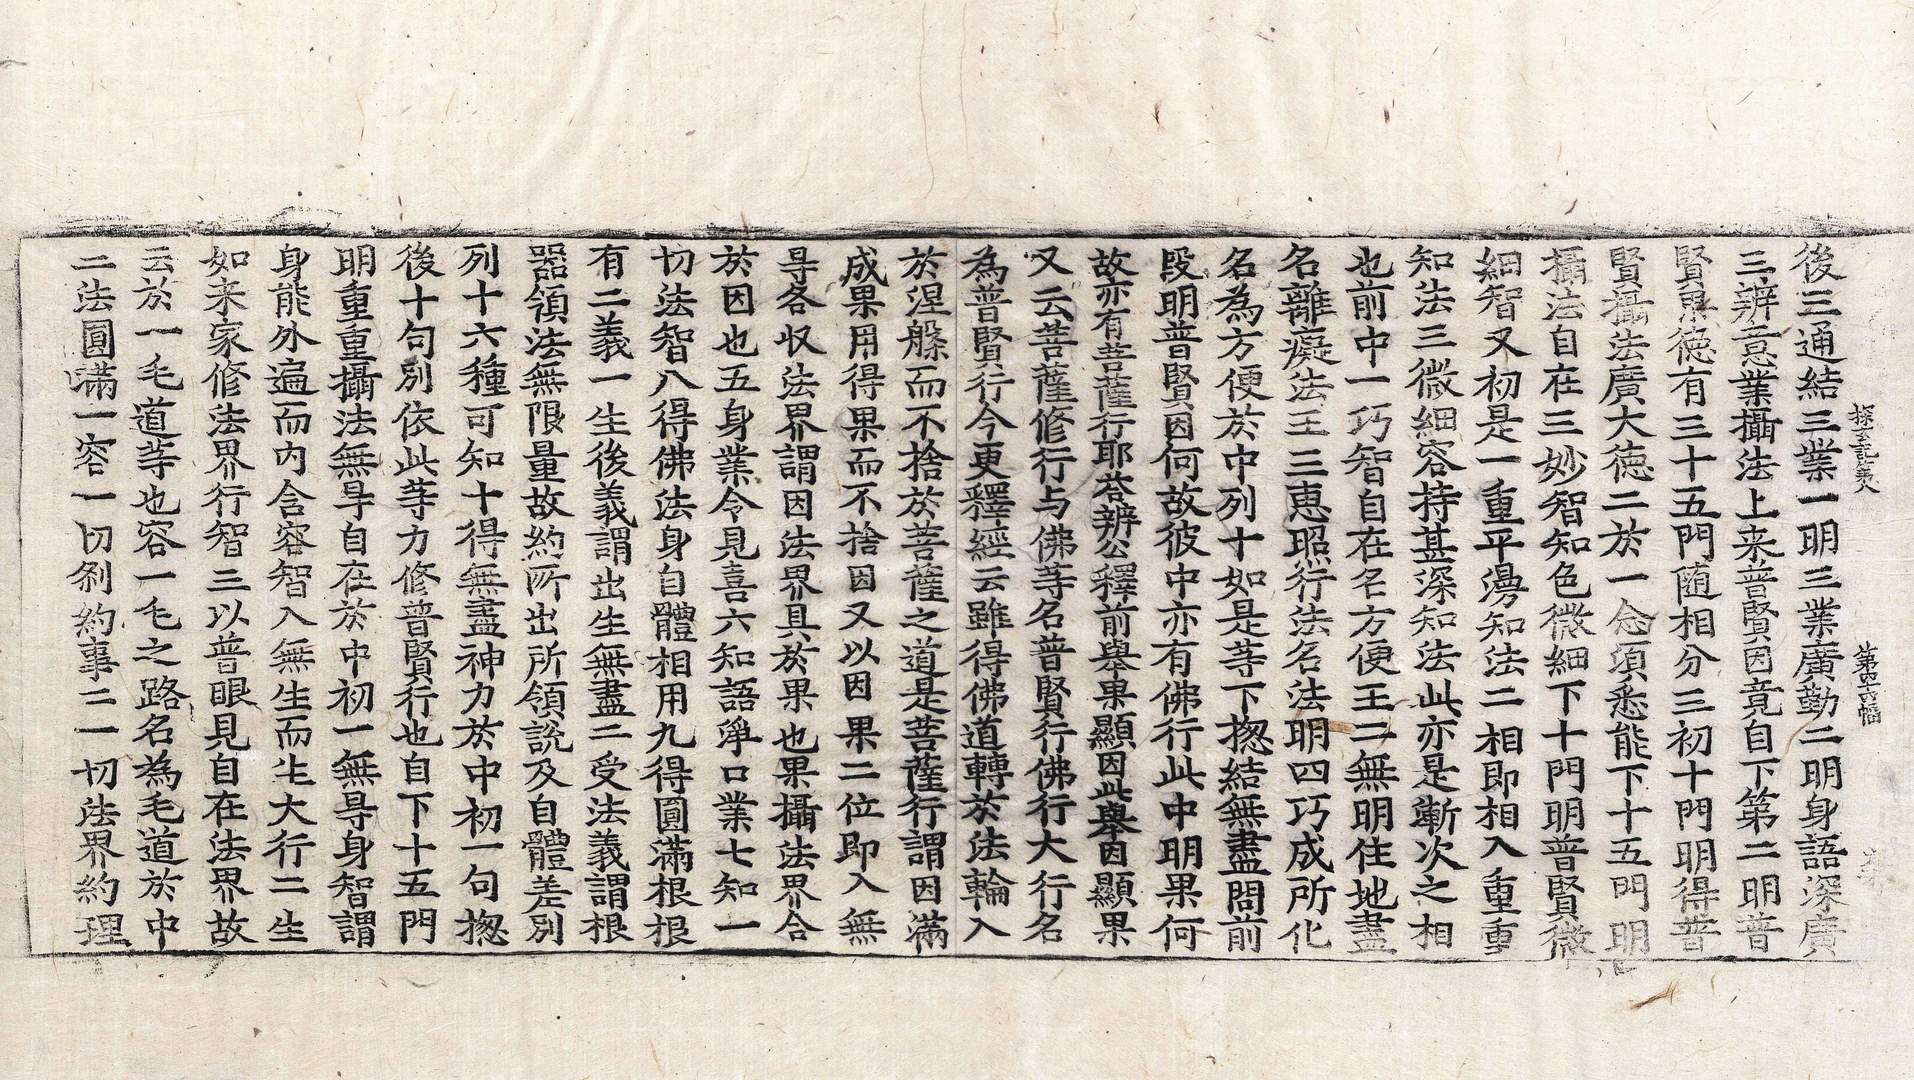 探玄記第八 第四六幅
後三通結三業一明三業廣勤二明身語深廣
三辨意業攝法上来普賢因竟自下第二明普
賢果德有三十五門随相分三初十門明得普
賢攝法廣大德二於一念須悉能下十五門明
攝法自在三妙智知色微細下十門明普賢微
細智又初是一重平漫知法二相即相入重重
知法三微細容持甚深知法此亦是漸次之相
也前中一巧智自在名方便王二無明住地盡
名離癡法王三惠照行法名法明四巧成所化
名為方便於中列十如是等下揔結無盡問前
段明普賢因何故彼中亦有佛行此中明果何
故亦有菩薩行耶答辨公釋前舉果顯因此舉因顯果
又云菩薩修行与佛等名普賢行佛行大行名
為普賢行今更釋經云雖得佛道轉於法輪入
於涅槃而不捨於菩薩之道是菩薩行謂因滿
成果用得果而不捨因又以因果二位即入無
㝵各収法界謂因法界具於果也果攝法界合
於因也五身業令見喜六知語淨口業七知一
切法智八得佛法身自體相用九得圓滿根根
有二義一生後義謂出生無盡二受法義謂根
器領法無限量故約所出所領說及自體差別
列十六種可知十得無盡神力於中初一句揔
後十句別依此等力修普賢行也自下十五門
明重重攝法無㝵自在於中初一無㝵身智謂
身能外遍而內含容智入無生而生大行二生
如来家修法界行智三以普眼見自在法界故
云於一毛道等也容一毛之路名為毛道於中
二法圓滿一容一切刹約事二一切法界約理